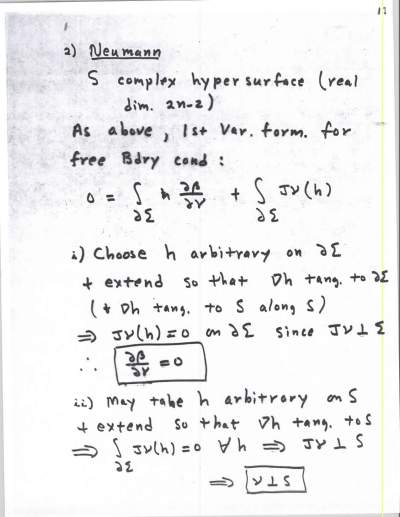 17
2) Neumann
S complex hypersurface (real
dim. 2n-2)
As above, 1st Var. form. for
free Bdry cond :
0 = ∫_∂Σ h ∂β/∂ν + ∫_∂Σ Jν(h)
i) Choose h arbitrary on ∂Σ
+ extend so that ∇h tang. to ∂Σ
(+ ∇h tang. to S along S)
⇒ Jν(h) = 0 on ∂Σ since Jν ⊥ Σ
∴ ∂β/∂ν = 0
ii) May take h arbitrary on S
+ extend so that ∇h tang. to S
⇒ ∫_∂Σ Jν(h) = 0 ∀h ⇒ Jν ⊥ S
⇒ ν ⊥ S